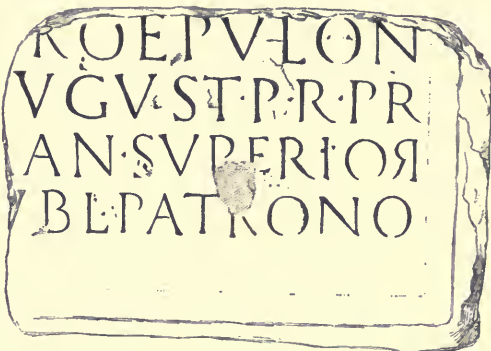 ROEPVLON
VGVST·P·R·PR
AN·SVPERIOЯ
BL·PATRONO